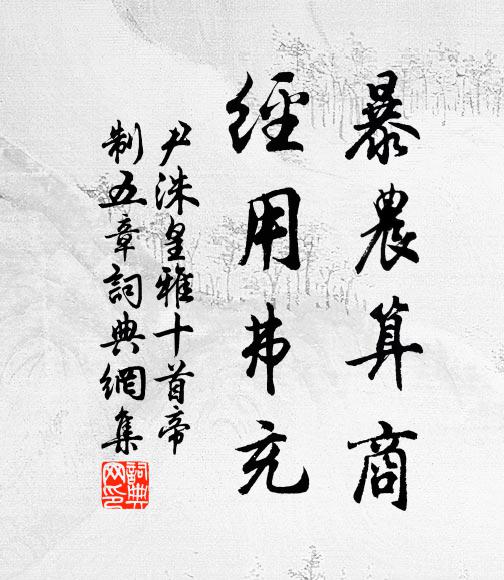 暴農算商
經用弗充
尹洙皇雅十首帝
制五章詞典網集
詞典
网印